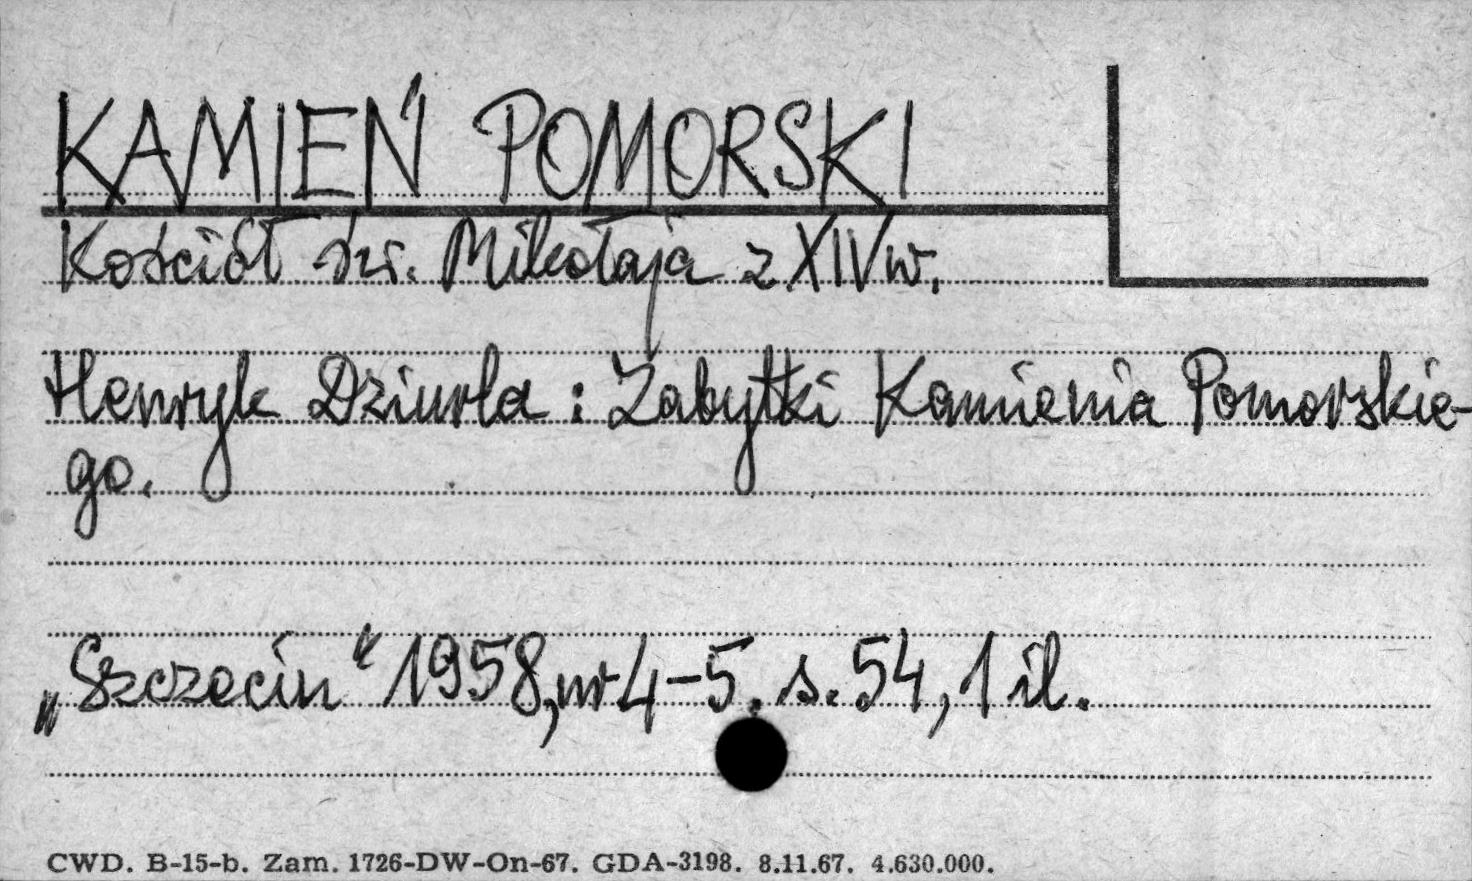 KAMIEŃ POMORSKI
Kościół św. Mikołaja z XIV w.
Henryk Dziurla : Zabytki Kamienia Pomorskie-
go.
„Szczecin" 1958, nr 4-5. s. 54, 1 il.
CWD. B-15-b. Zam. 1726-DW-On-67. GDA-3198. 8.11.67. 4.630.000.